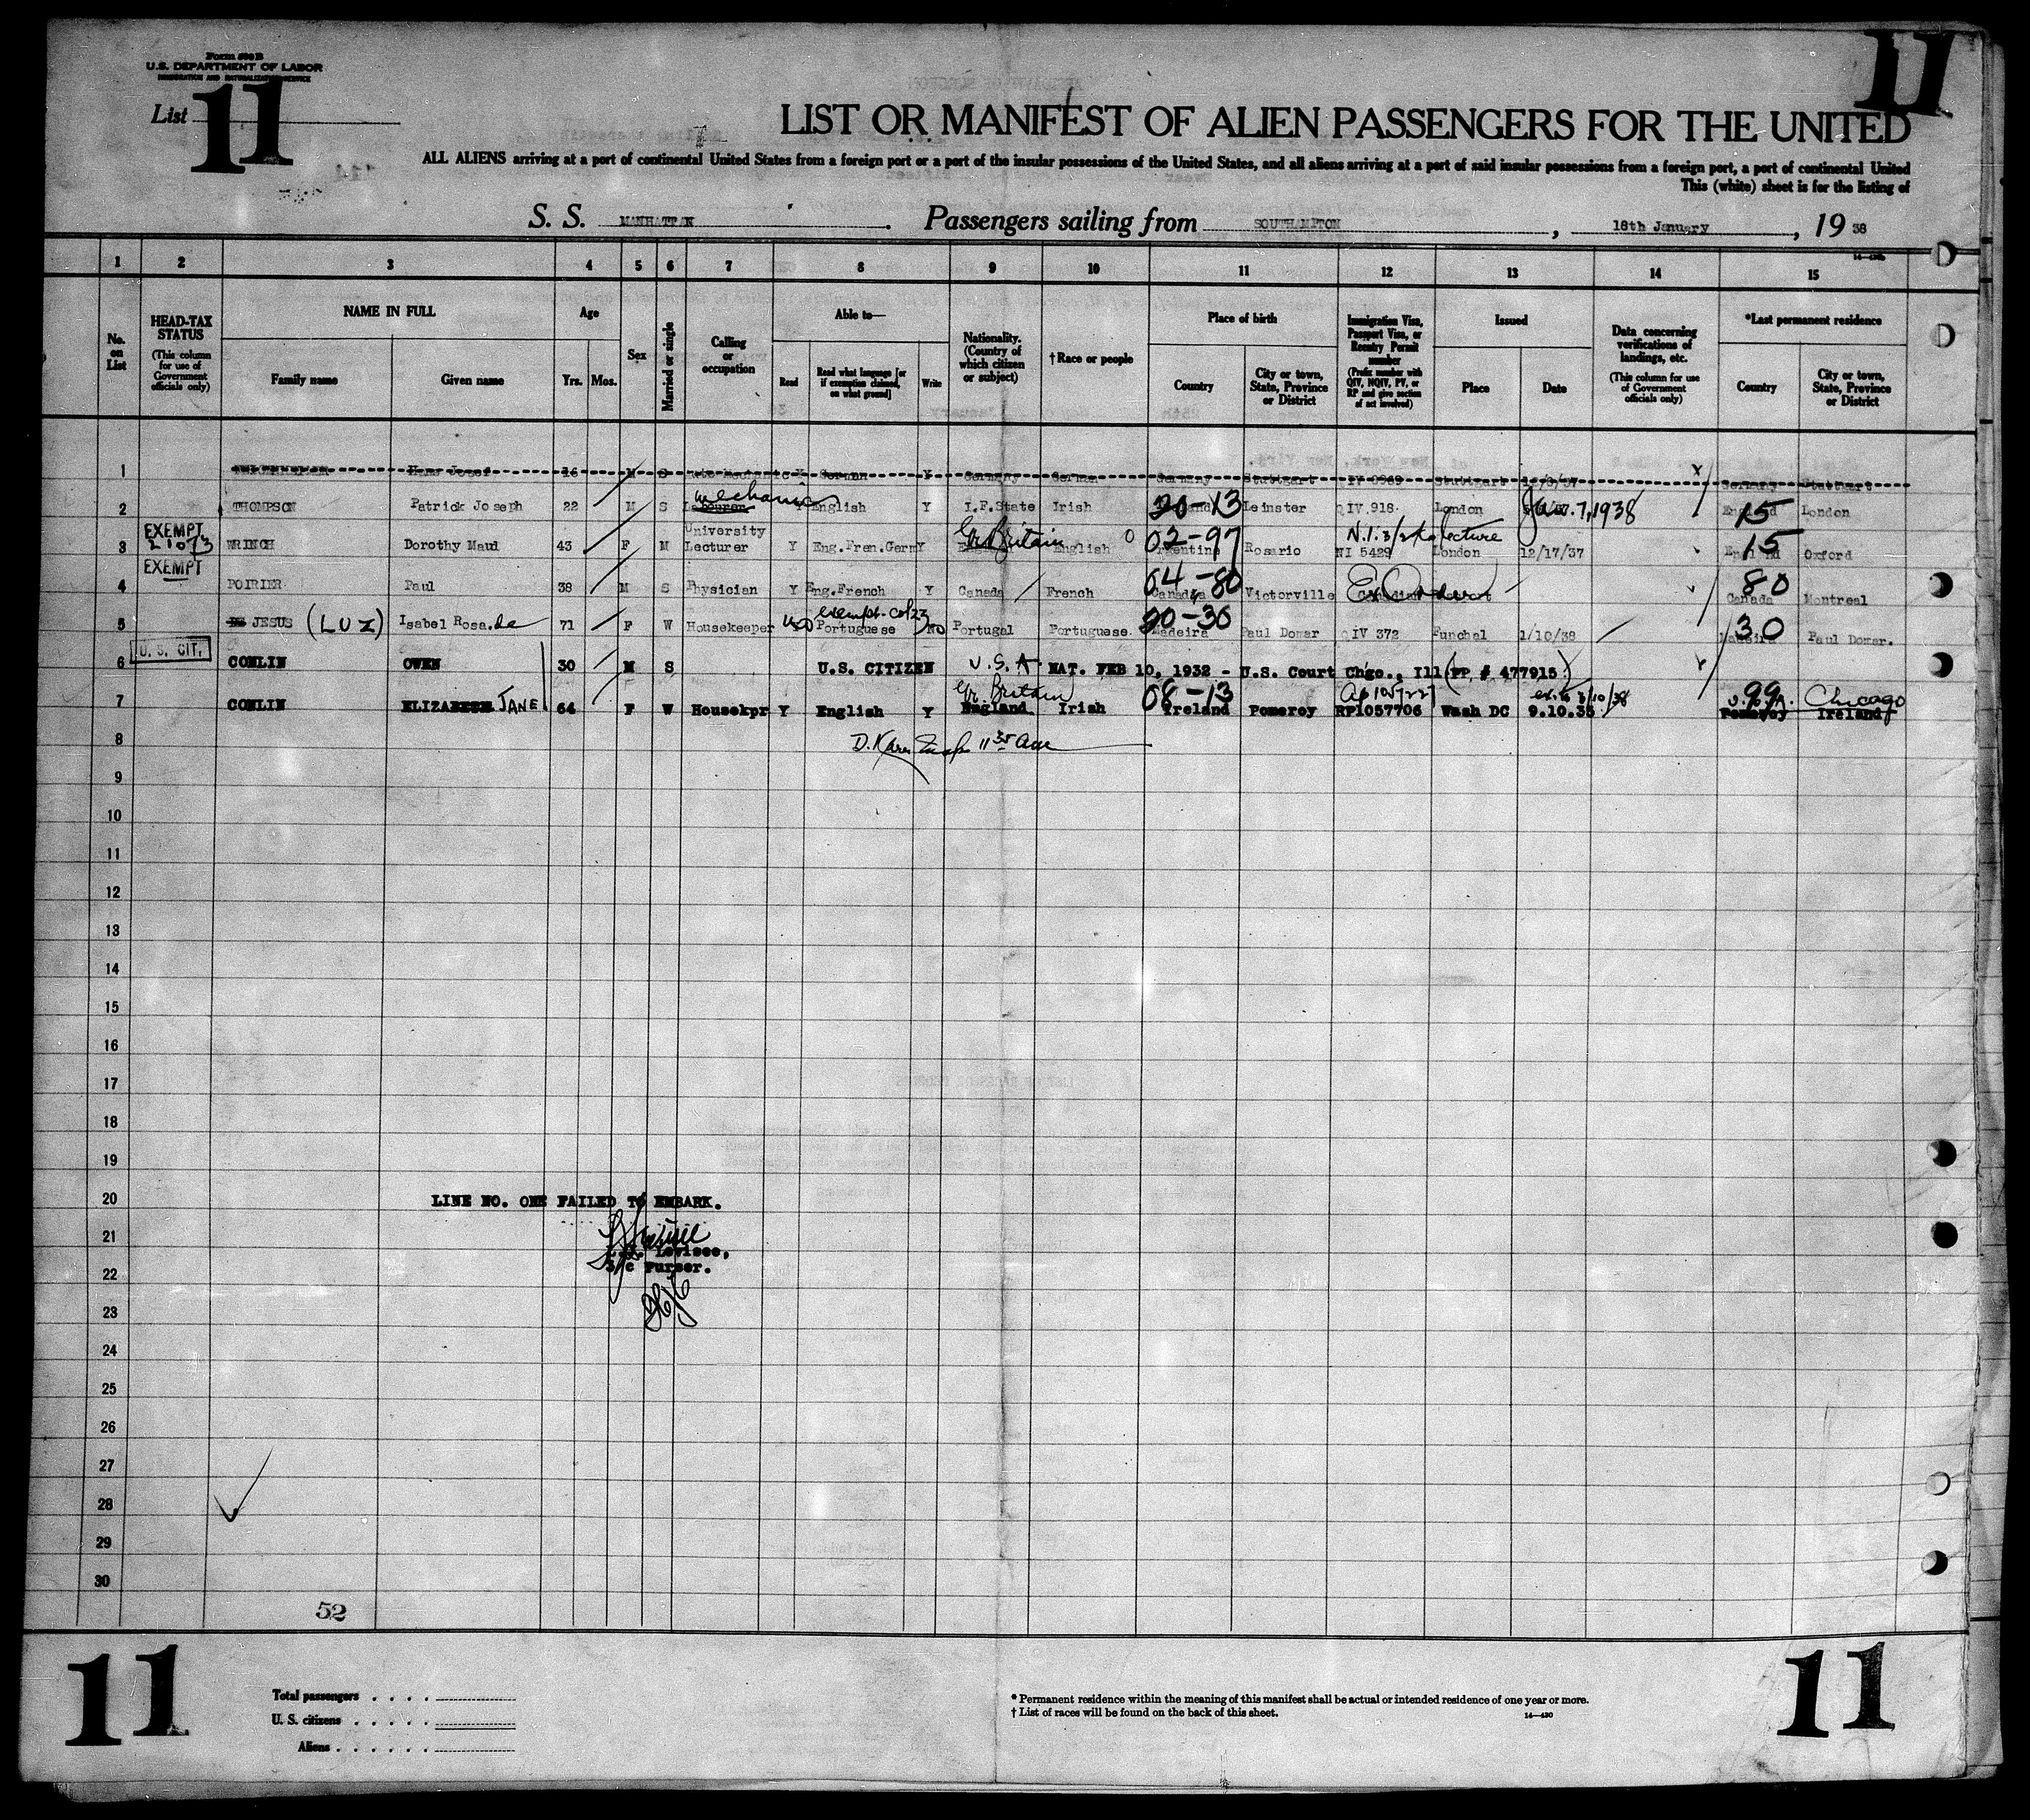 Form 500 B
U.S. DEPARTMENT OF LABOR
IMMIGRATION AND NATURALIZATION SERVICE
List 11
11
LIST OR MANIFEST OF ALIEN PASSENGERS FOR THE UNITED
ALL ALIENS arriving at a port of continental United States from a foreign port or a port of the insular possessions of the United States, and all aliens arriving at a port of said insular possessions from a foreign port, a port of continental United
This (white) sheet is for the listing of
S. S. MANHATTAN. Passengers sailing from SOUTHAMPTON, 18th January, 19 38
1 2 3 4 5 6 7 8 9 10 11 12 13 14 15
No. on List
HEAD-TAX STATUS (This column for use of Government officials only)
NAME IN FULL
Family name Given name
Age
Yrs. Mos.
Sex
Married or single
Calling or occupation
Able to—
Read
Read what language [or if exemption claimed, on what ground]
Write
Nationality. (Country of which citizen or subject)
†Race or people
Place of birth
Country
City or town, State, Province or District
Immigration Visa, Passport Visa, or Reentry Permit number (Prefix number with QIV, NQIV, PV, or RP and give section of act involved)
Issued
Place Date
Data concerning verifications of landings, etc. (This column for use of Government officials only)
*Last permanent residence
Country
City or town, State, Province or District
1 Hans Josef 16 M S German Y Germany German Germany Stuttgart Stuttgart Germany Stuttgart
mechanic
2 THOMPSON Patrick Joseph 22 M S English Y I.F.State Irish 20-13 Leinster QIV 918 London Jan. 7, 1938 15 London
EXEMPT
University Gr Britain N.I. 3/2 to lecture
3 WRINCH Dorothy Maud 43 F M Lecturer Y Eng.Fren.Germ Y English 02-97 Argentina Rosario NI 5429 London 12/17/37 15 England Oxford
EXEMPT
4 POIRIER Paul 38 M S Physician Y Eng.French Y Canada French 64-80 Canada Victorville 80 Canada Montreal
exempt-col 23
5 DE JESUS (LUZ) Isabel Rosa. de 71 F W Housekeeper no Portuguese No Portugal Portuguese. 00-30 Madeira Paul Domar QIV 372 Funchal 1/10/38 30 Madeira Paul Domar.
U. S. CIT.
6 CONLIN OWEN 30 M S U.S. CITIZEN U.S.A. NAT. FEB 10, 1932 - U.S. Court Chgo., Ill (PP # 477915)
Gr. Britain 08-13 99 Chicago
7 CONLIN ELIZABETH JANE 64 F W Housekpr Y English Y England Irish Ireland Pomeroy RP1057706 Wash DC 9.10.35 U.S.A. Pomeroy Ireland
8
9
10
11
12
13
14
15
16
17
18
19
20 LINE NO. ONE FAILED TO EMBARK.
21 Levisee,
22 Purser.
23
24
25
26
27
28
29
30
52
11
11
Total passengers
U. S. citizens
Aliens
* Permanent residence within the meaning of this manifest shall be actual or intended residence of one year or more.
† List of races will be found on the back of this sheet.
14—430